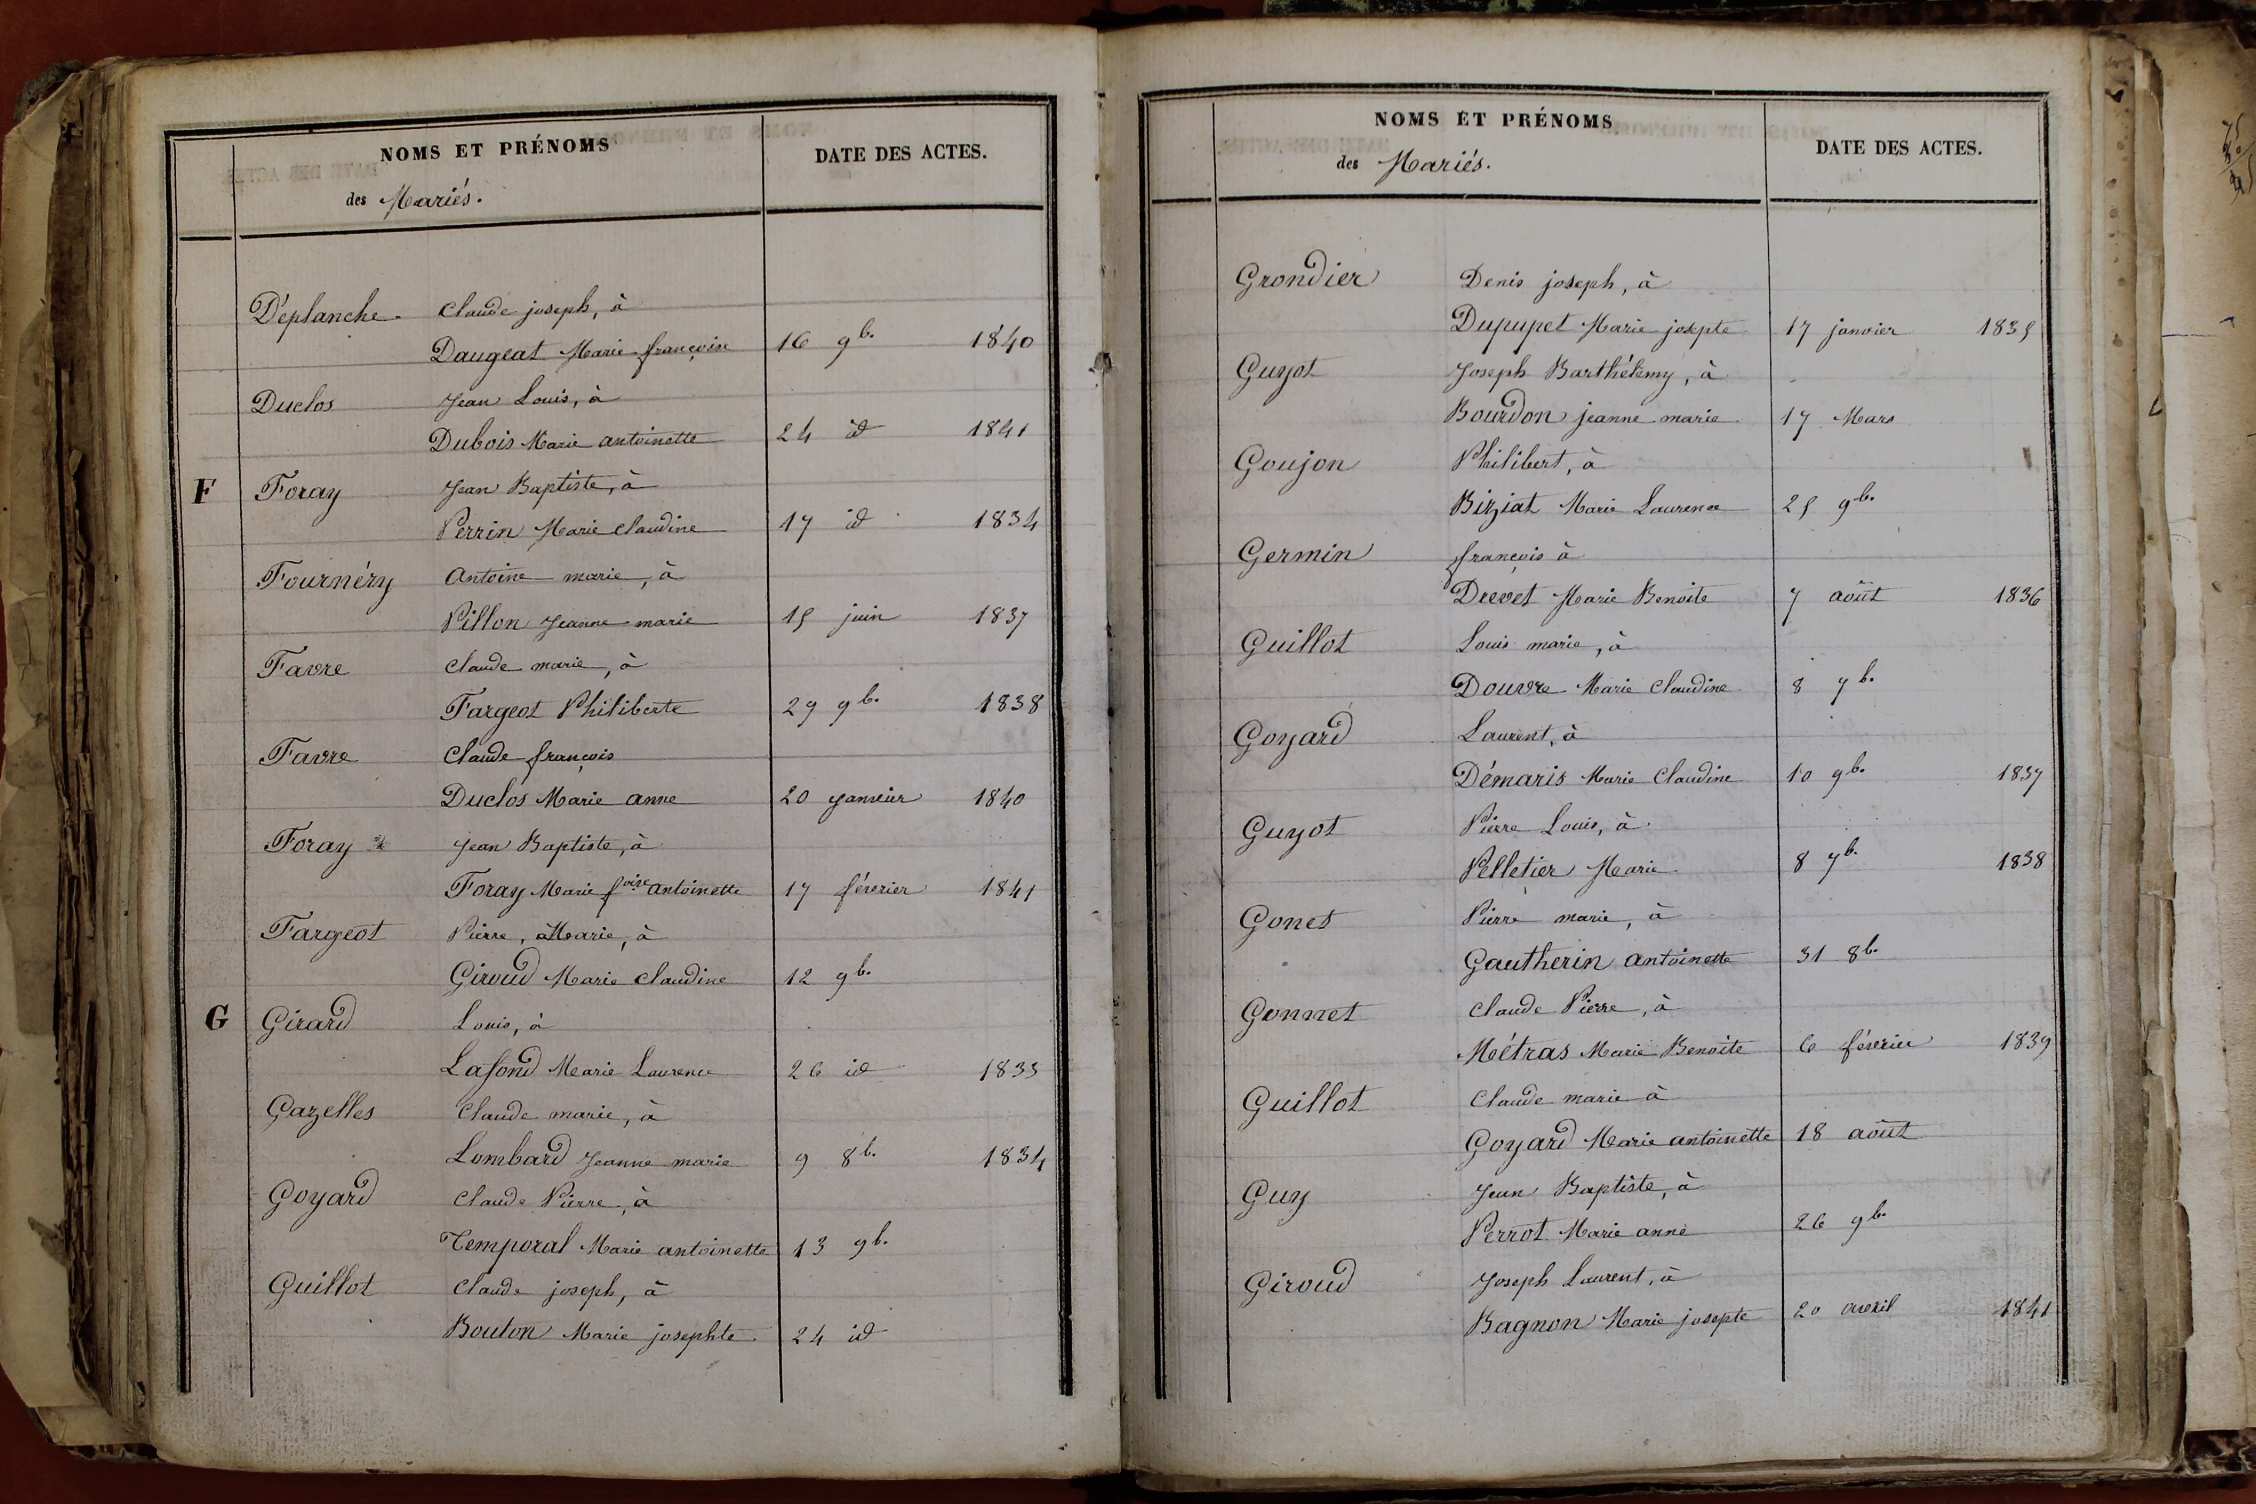 NOMS ET PRÉNOMS
des Mariés.
DATE DES ACTES.
Déplanche Claude joseph, à
Daugeat Marie françoise 16 9b. 1840
Duclos Jean Louis, à
Dubois Marie antoinette 24 id 1841
F Foray Jean Baptiste, à
Perrin Marie Claudine 17 id 1834
Fournéry Antoine marie, à
Pillon Jeanne marie 15 juin 1837
Favre Claude marie, à
Fargeot Philiberte 29 9b. 1838
Favre Claude françois
Duclos Marie anne 20 janvier 1840
Foray Jean Baptiste, à
Foray Marie foise antoinette 17 février 1841
Fargeot Pierre, Marie, à
Giroud Marie Claudine 12 9b.
G Girard Louis, à
Lafond Marie Laurence 26 id 1833
Gazelles Claude marie, à
Lombard Jeanne marie 9 8b. 1834
Goyard Claude Pierre, à
Temporal Marie antoinette 13 9b.
Guillot Claude joseph, à
Bouton Marie josephte 24 id
NOMS ET PRÉNOMS
des Mariés.
DATE DES ACTES.
Grondier Denis joseph, à
Dupupet Marie josepte 17 janvier 1835
Guyot Joseph Barthélemy, à
Bourdon jeanne marie 17 Mars
Goujon Philibert, à
Biziat Marie Laurence 25 9b.
Germin françois à
Drevet Marie Benoite 7 août 1836
Guillot Louis marie, à
Douvre Marie Claudine 8 7b.
Goyard Laurent, à
Démaris Marie Claudine 10 9b. 1837
Guyot Pierre Louis, à
Pelletier Marie 8 7b. 1838
Gonet Pierre marie, à
Gautherin antoinette 31 8b.
Gonnet Claude Pierre, à
Métras Marie Benoite 6 février 1839
Guillot Claude marie à
Goyard Marie antoinette 18 août
Guy Jean Baptiste, à
Perrot Marie anne 26 9b.
Giroud Joseph Laurent, à
Bagnon Marie josepte 20 avril 1841